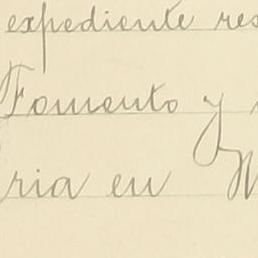 expediente res
Fomento y
ria en